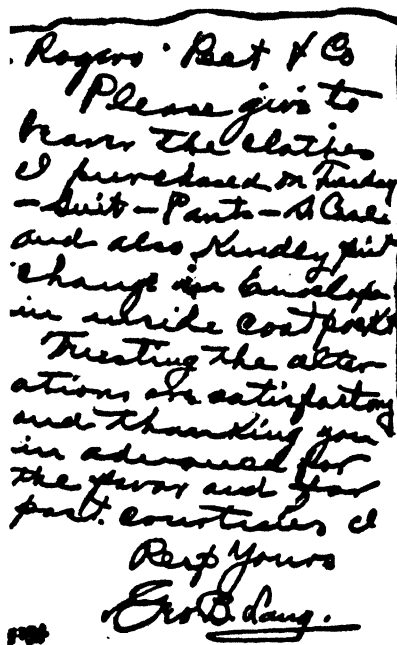 Rogers · Peet & Co
Please give to
bearer the clothes
I purchased on Tuesday
- Suit - Pants - & Coat
and also Kindly put
change in Envelope
in inside coat pocket
Trusting the alter
ations are satisfactory
and thanking you
in advance for
the favor and for
past courtesies I
Resp Yours
Geo B. Lang.